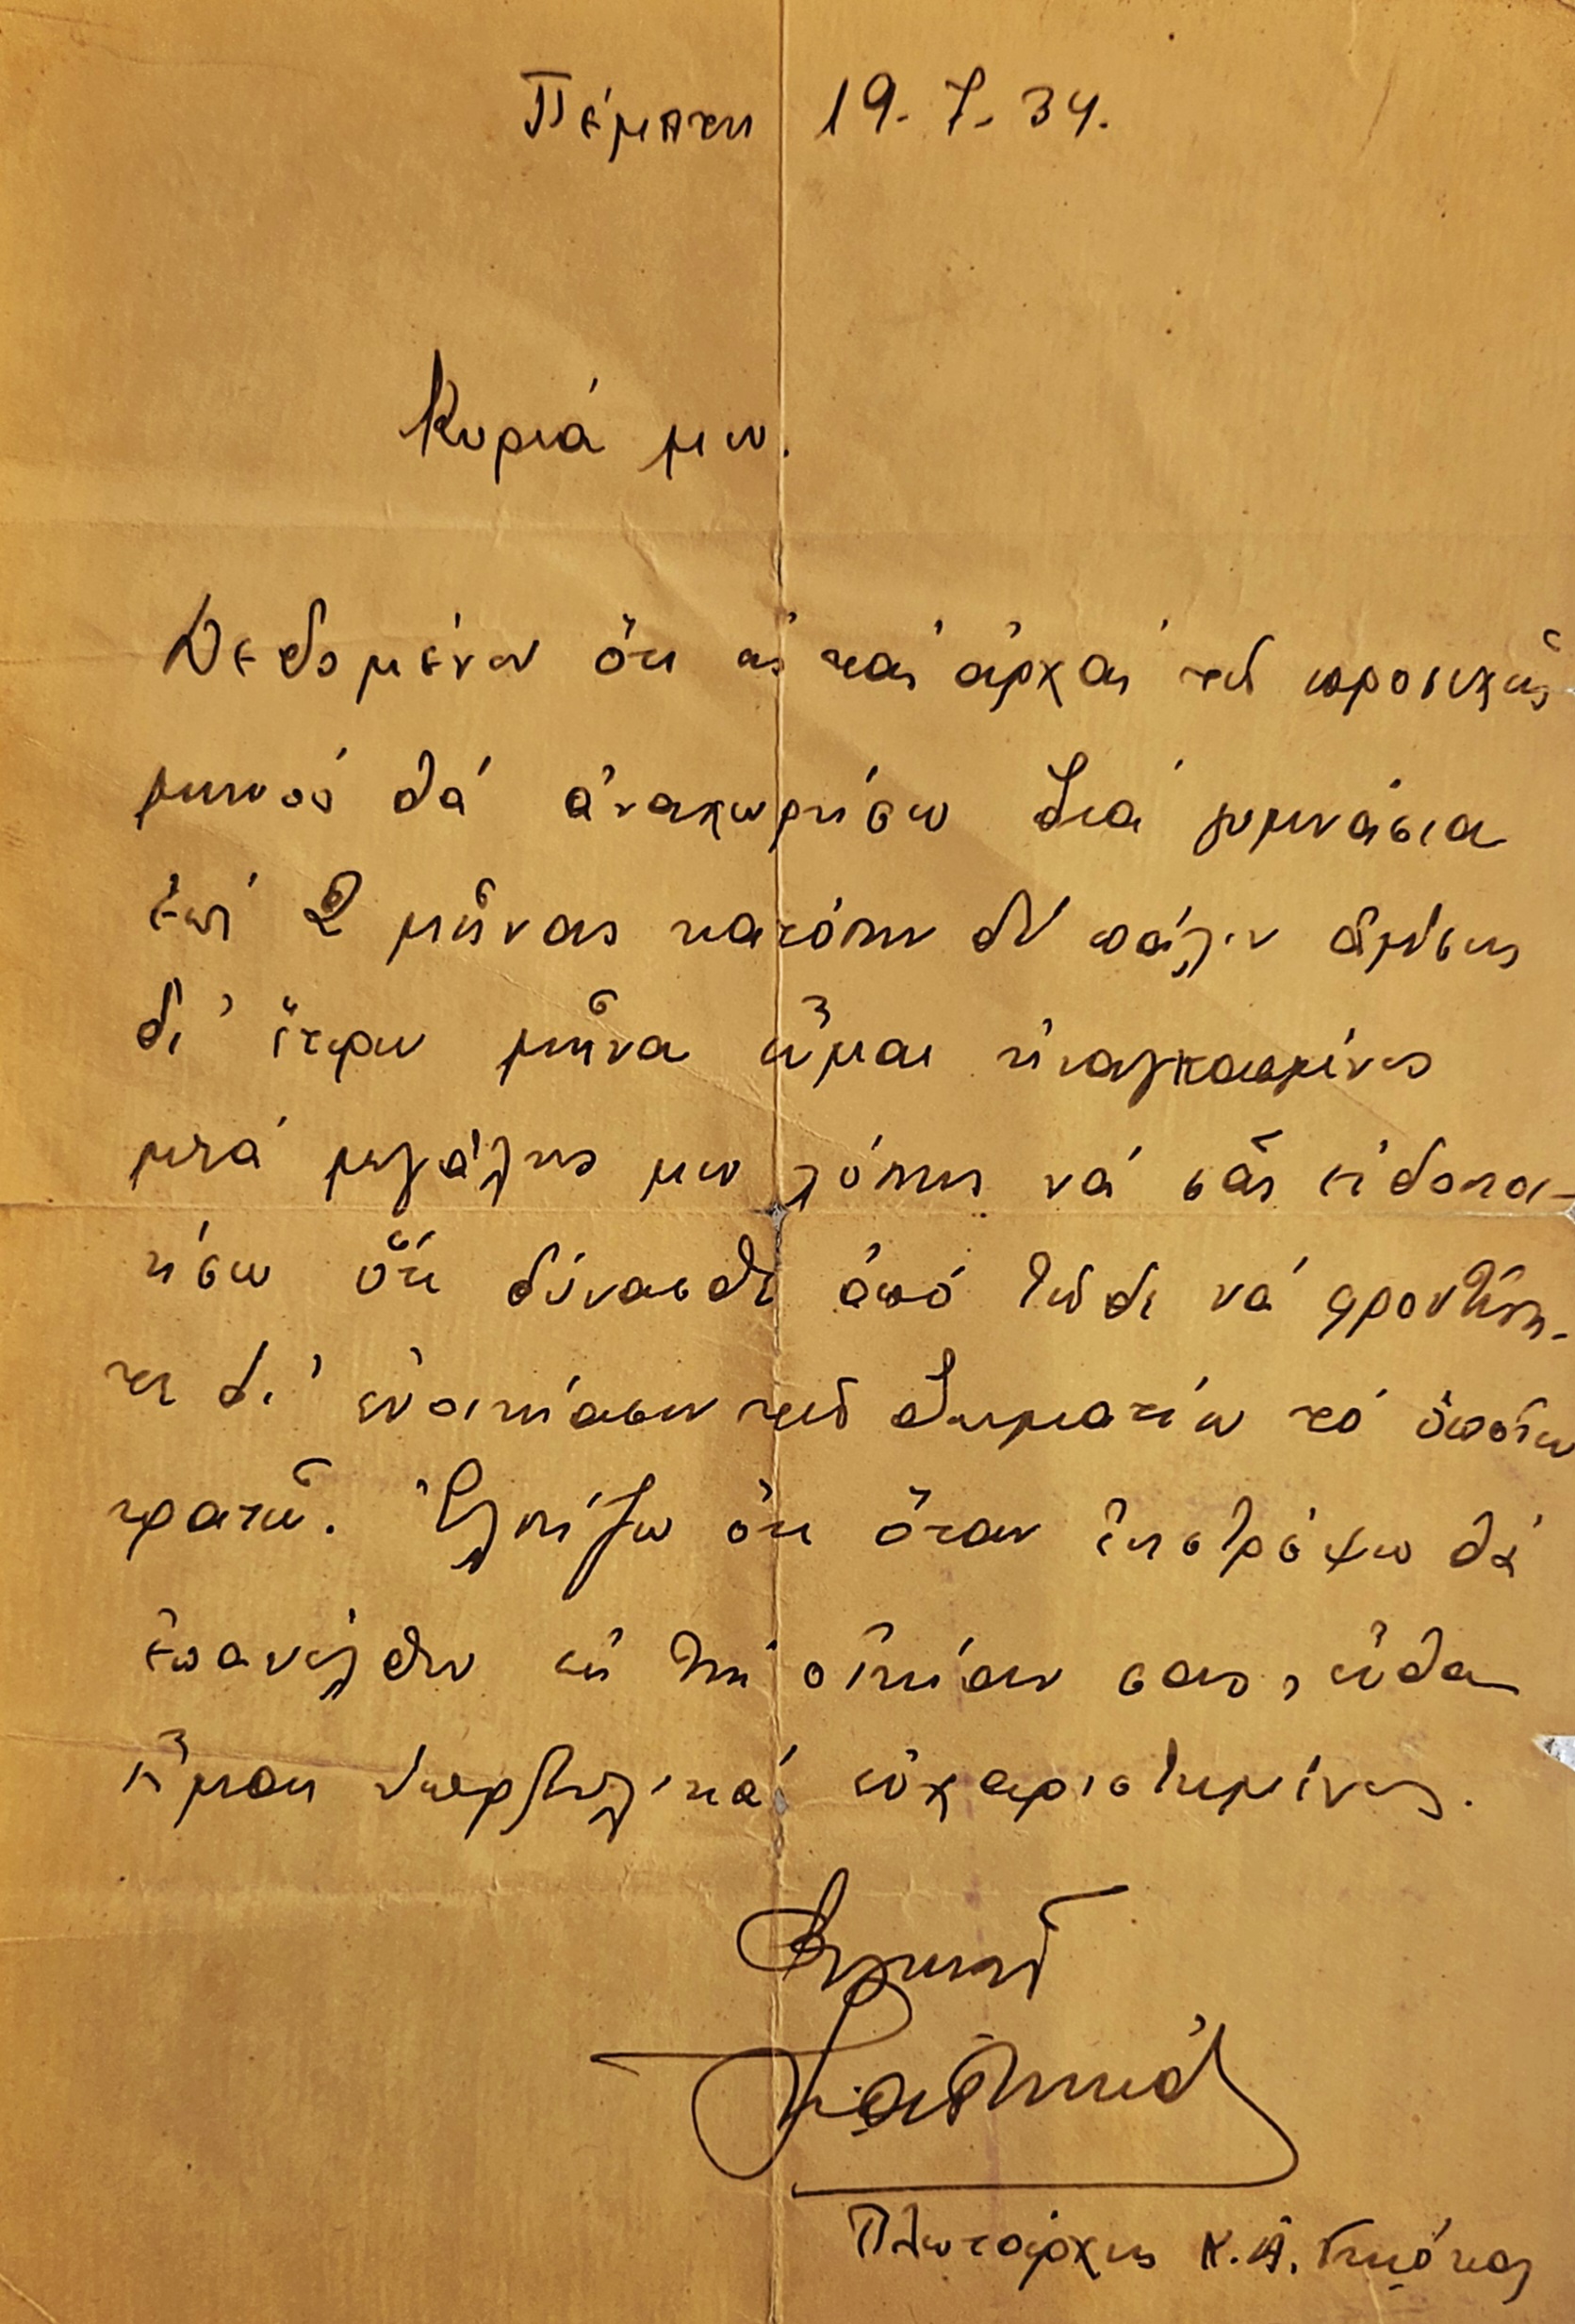 Πέμπτη 19-7-34.
Κυρία μου.
Δεδομένου ὅτι εἰς τάς ἀρχάς τοῦ προσεχοῦς
μηνός θά ἀναχωρήσω διά γυμνάσια
ἐπί 2 μῆνας κατόπιν δέ πάλιν ἀμέσως
δι' ἕτερον μῆνα εἶμαι ἠναγκασμένος
μετά μεγάλης μου λύπης νά σᾶς εἰδοποι-
ήσω ὅτι δύνασθε ἀπό τοῦδε νά φροντίση-
τε δι' ἐνοικίασιν τοῦ δωματίου τό ὁποῖον
κρατῶ. Ἐλπίζω ὅτι ὅταν ἐπιστρέψω θά
ἐπανέλθω εἰς τήν οἰκίαν σας, εἶδα
εἶμαι ὑπερβολικά εὐχαριστημένος.
Πλωτάρχης Κ. Α.